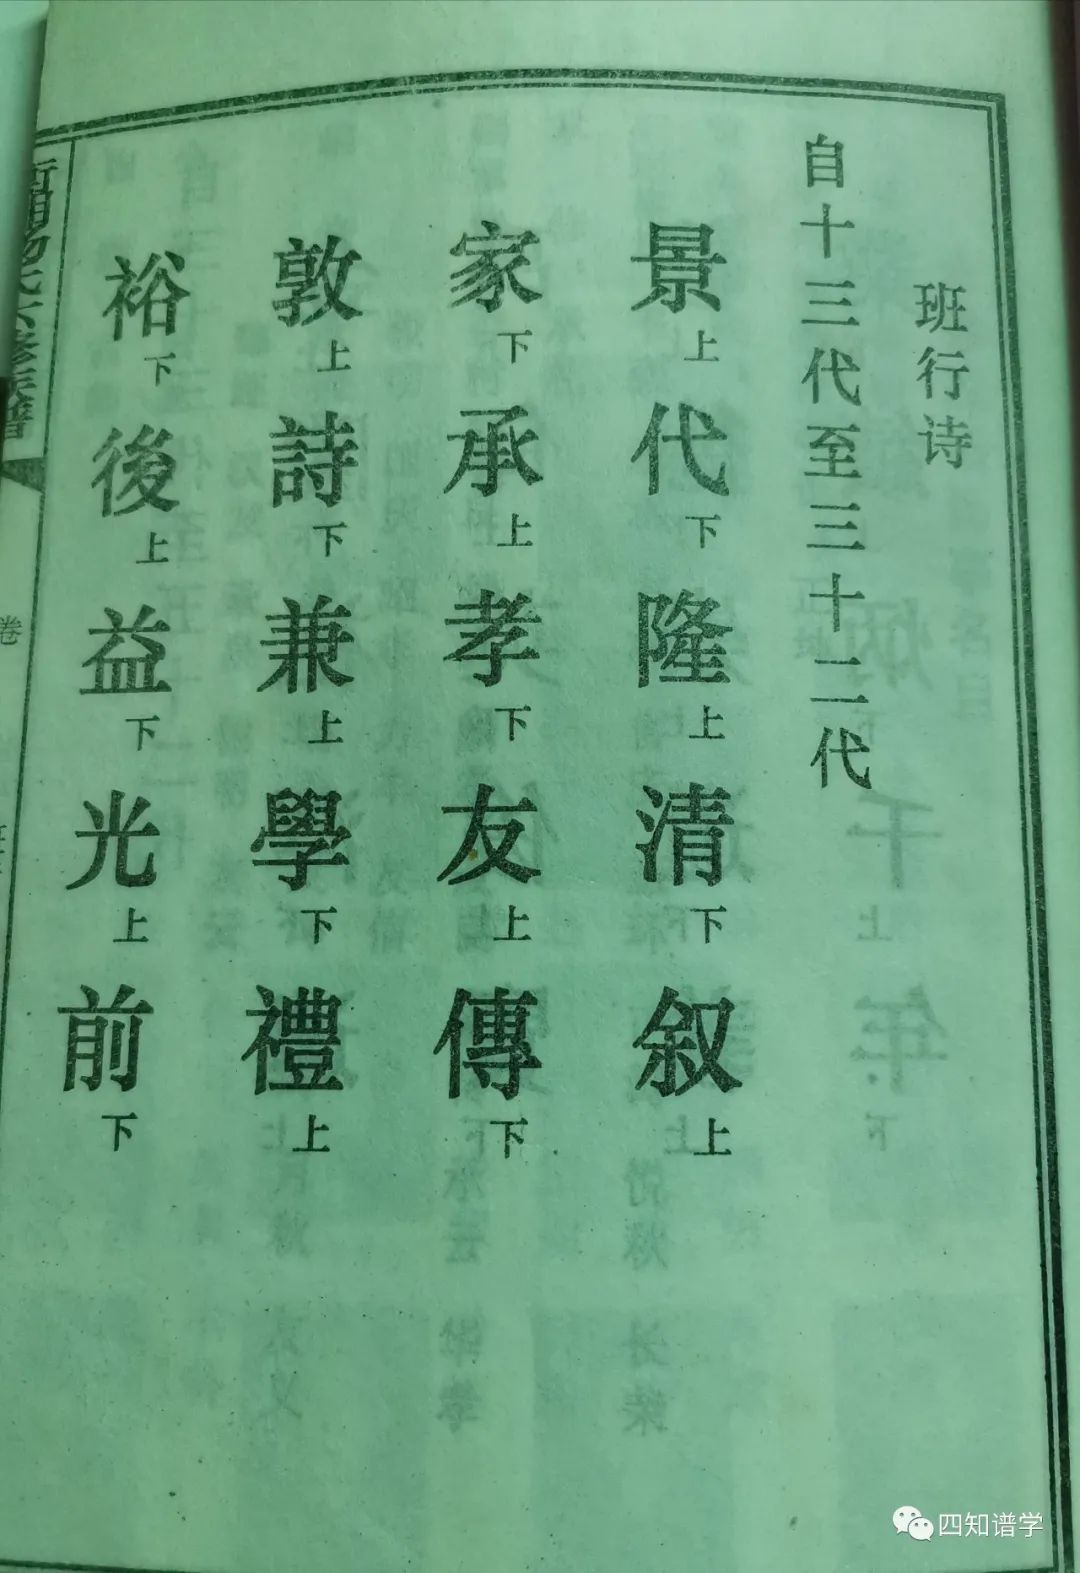 班行诗
自十三代至三十二代
景上代下隆上清下叙上
家下承上孝下友上傳下
敦上詩下兼上學下禮上
裕下後上益下光上前下
卷
四知谱学